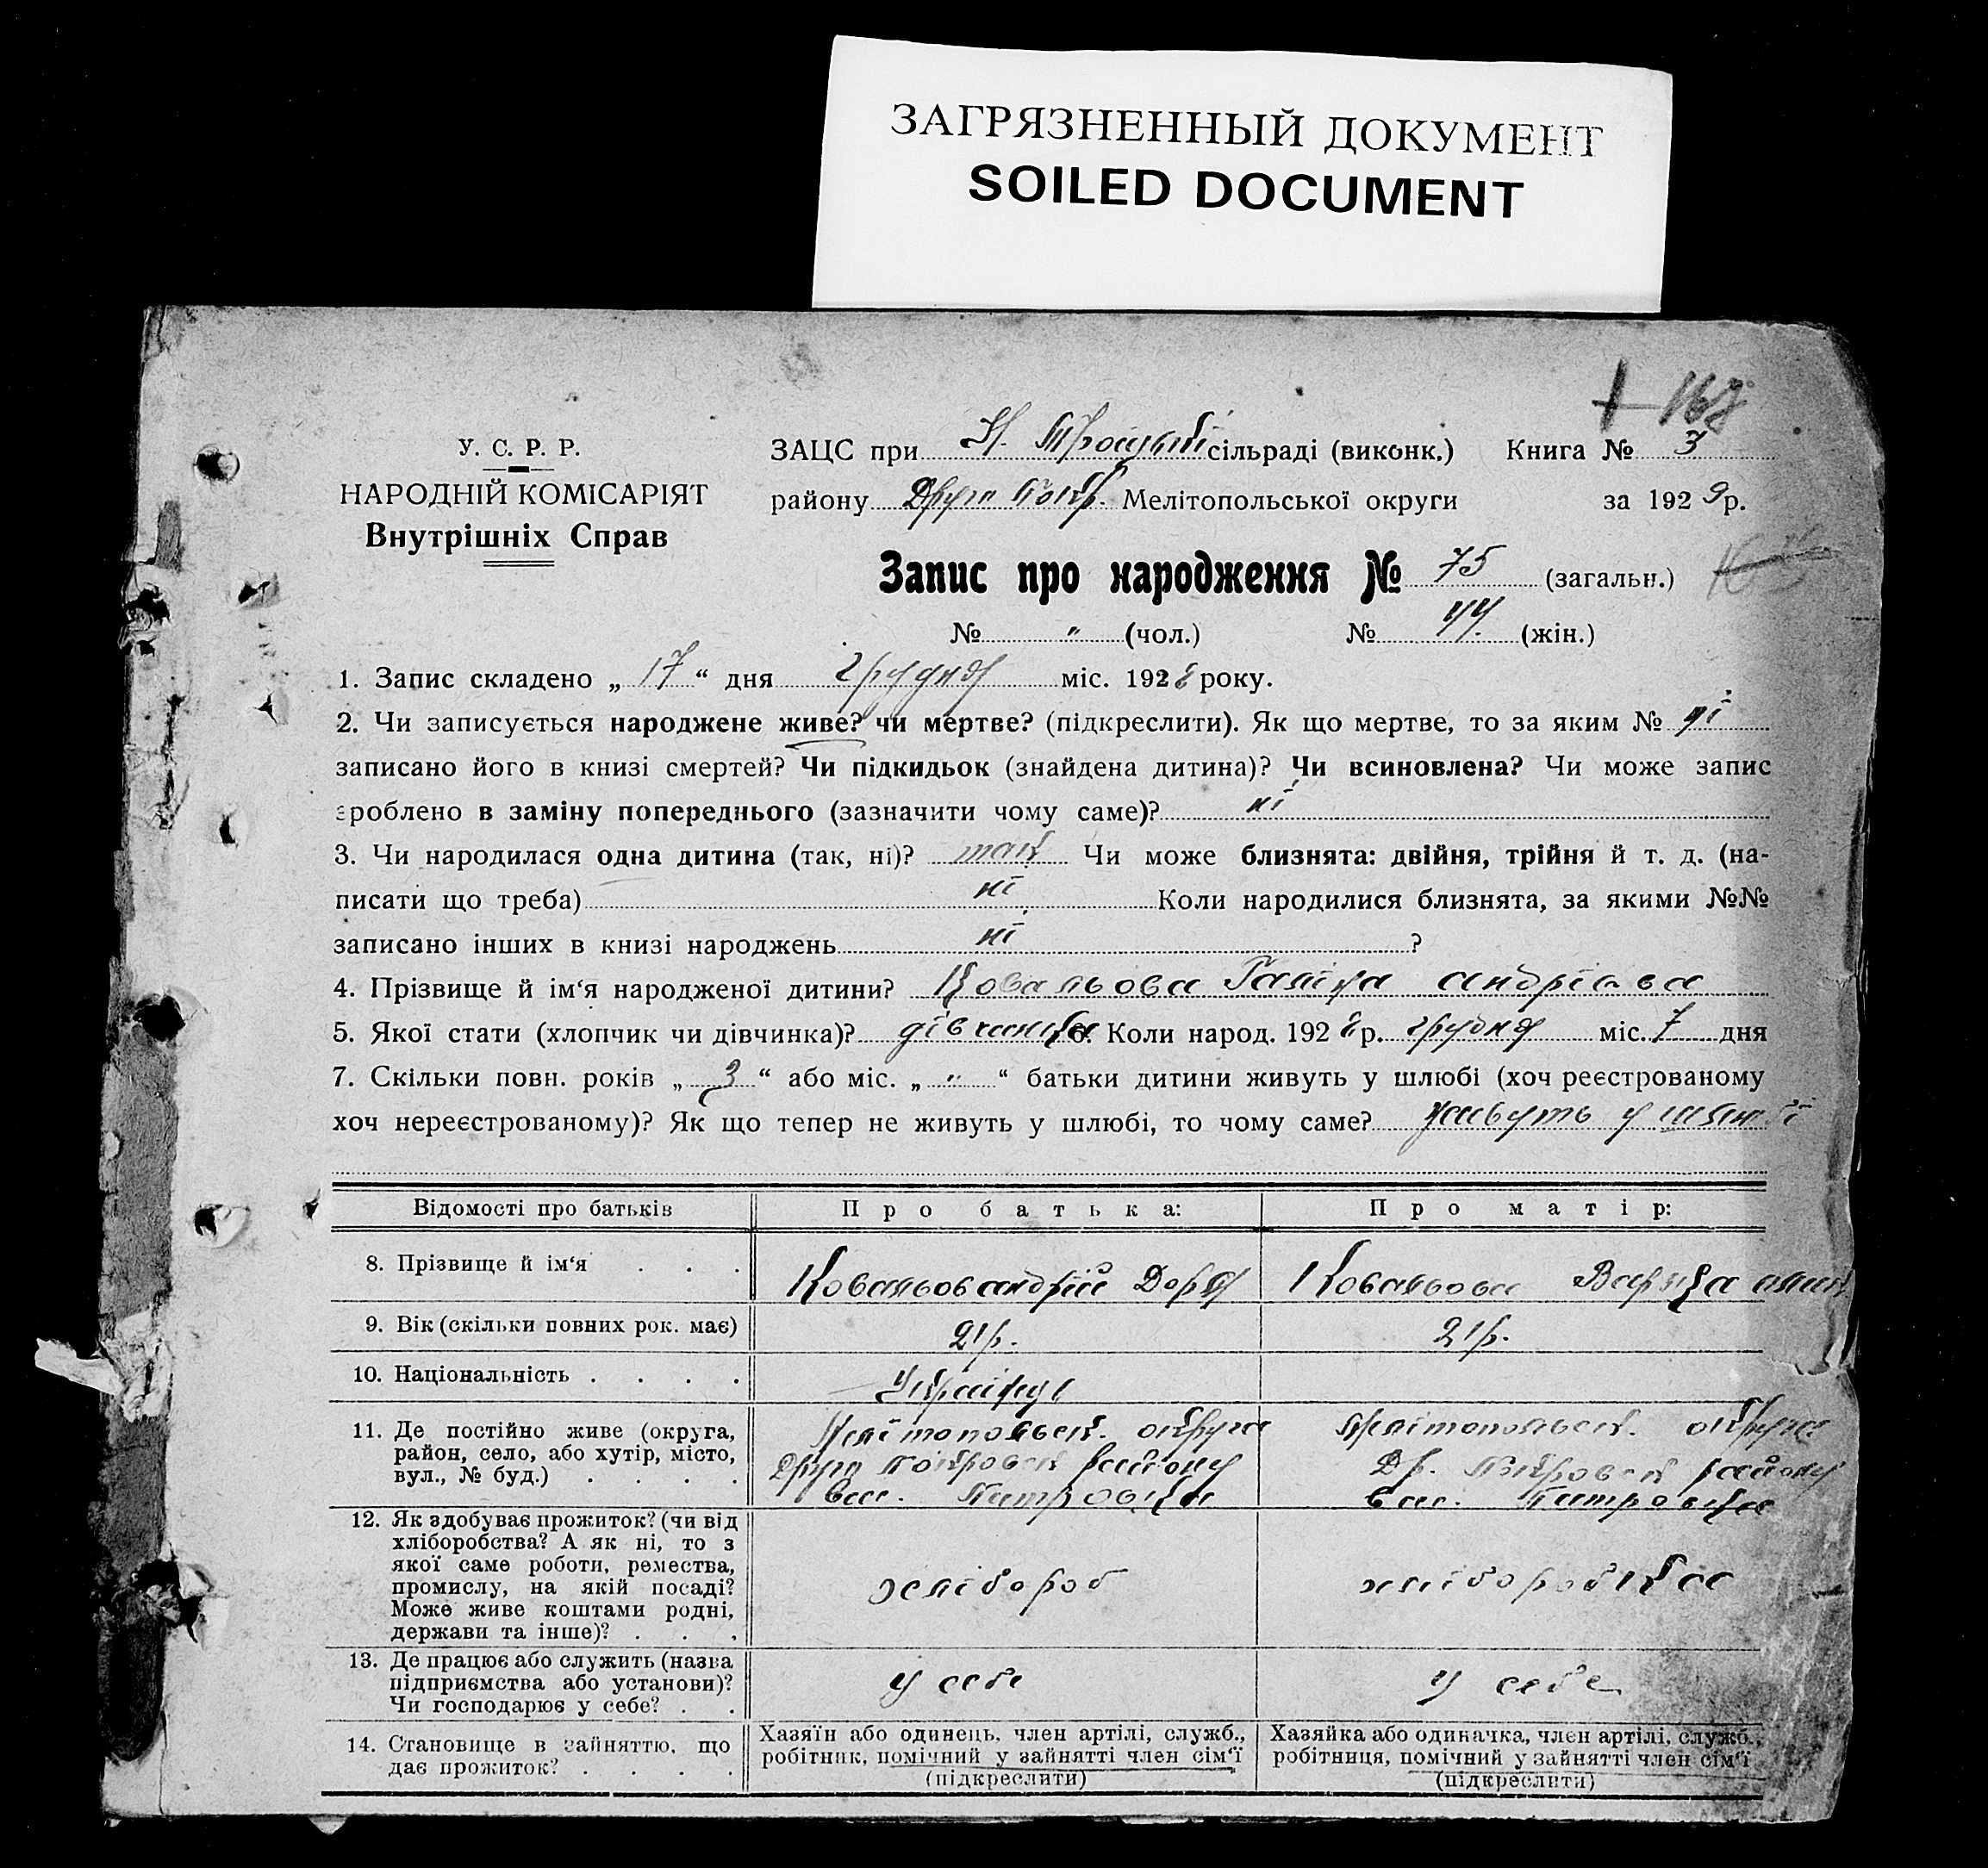 ЗАГРЯЗНЕННЫЙ ДОКУМЕНТ
SOILED DOCUMENT
167
У. С. Р. Р.
НАРОДНІЙ КОМІСАРІЯТ
Внутрішніх Справ
ЗАЦС при Н. Троцькій сільраді (виконк.) Книга № 3
району Друго Покр. Мелітопольської округи за 1929 р.
Запис про народження № 75 (загальн.)
№ " (чол.) № 44. (жін.)
1. Запис складено „ 17 “ дня грудня міс. 1928 року.
2. Чи записується народжене живе? чи мертве? (підкреслити). Як що мертве, то за яким № ні
записано його в книзі смертей? Чи підкидьок (знайдена дитина)? Чи всиновлена? Чи може запис
зроблено в заміну попереднього (зазначити чому саме)? ні
3. Чи народилася одна дитина (так, ні)? так Чи може близнята: двійня, трійня й т. д. (на-
писати що треба) ні Коли народилися близнята, за якими №№
записано інших в книзі народжень ні ?
4. Прізвище й ім‘я народженої дитини? Ковальова Галіна
5. Якої стати (хлопчик чи дівчинка)? дівчинка 6. Коли народ. 1928 р. грудня міс. 7 дня
7. Скільки повн. років „ 3 “ або міс. „ " “ батьки дитини живуть у шлюбі (хоч реєстрованому
хоч нереєстрованому)? Як що тепер не живуть у шлюбі, то чому саме? живуть у шлюбі
Відомості про батьків Про батька: Про матір:
8. Прізвище й ім‘я . . . Ковальов андрій Ковальова
9. Вік (скільки повних рок. має) 21 р. 21 р.
10. Національність . . . . Україн
11. Де постійно живе (округа,
район, село, або хутір, місто,
вул., № буд.) . . . .
Мелітопольськ. округа
Друго Покровськ району
вас. Патровка
Мелітопольськ. округа
Др. Покровськ району
вас. Патровка
12. Як здобуває прожиток? (чи від
хліборобства? А як ні, то з
якої саме роботи, ремества,
промислу, на якій посаді?
Може живе коштами родні,
держави та інше)? . . .
хлібороб
хліборобка
13. Де працює або служить (назва
підприємства або установи)?
Чи господарює у себе? . .
у себе
у себе
14. Становище в зайняттю, що
дає прожиток? . . . .
Хазяїн або одинець, член артілі, служб.,
робітник, помічний у зайнятті член сім‘ї
(підкреслити)
Хазяйка або одиначка, член артілі, служб.,
робітниця, помічний у зайнятті член сім‘ї
(підкреслити)